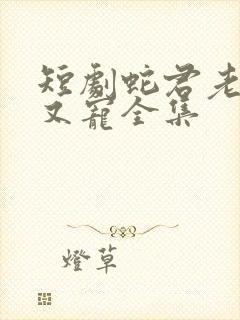 短劇蛇君老
又寵全集
燈草